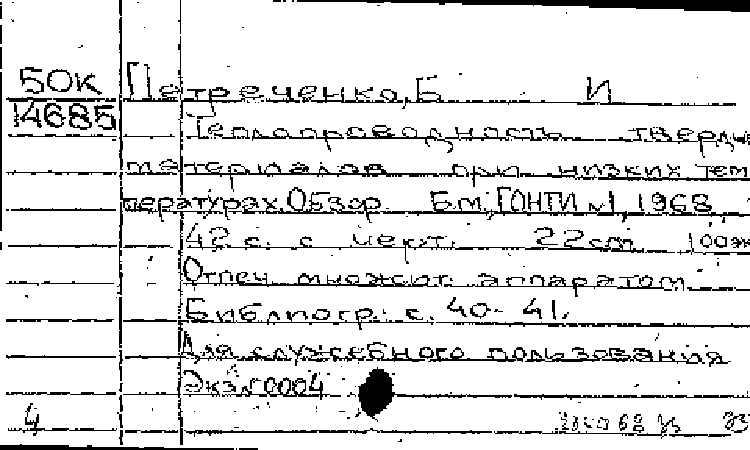 50К Петреченко, Б И
14685 Теплопроводность тверды
материалов при низких тем
пературах. Обзор Б.м, ГОНТИ №1, 1968
42 с. с черт. 22 cm 100эк
Отпеч. множит. аппаратом
Библиогр.: с. 40-41.
Для служебного пользования
Экз №0004
4